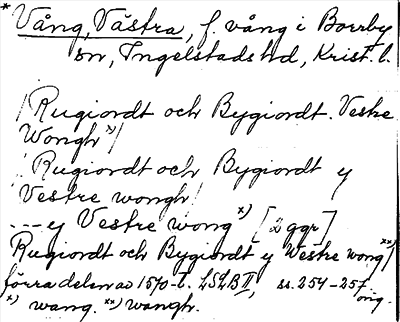 * Vång, Västra, f. vång i Borrby
sn, Ingelstads hd, Krist. l.
/Rugiordt och Bygiordt. Vestre
Wongh x)/
/Rugiordt och Bygiordt y
Vestre wongh/
--- y Vestre wong x) [2 ggr]
Rugiordt och Bygiordt y Westre wong xx)/
förra delen av 1570-t. LSLB II, ss. 254-257 orig.
x) wang. xx) wangh.